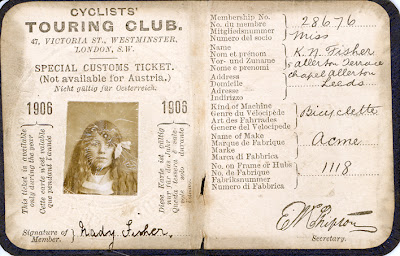 CYCLISTS'
TOURING CLUB.
47, VICTORIA ST., WESTMINSTER,
LONDON, S.W.
SPECIAL CUSTOMS TICKET.
(Not available for Austria.)
Nicht gültig für Oesterreich.
1906
1906
This ticket is available
only during the year.
Cette carte n'est valable
que pendant l'année
Diese Karte ist gültig
nur für das Jahr
Questa tessera è vale-
vole solo durante
Signature of
Member.
Nady Fisher.
Membership No.
No. du membre
Mitgliedsnummer
Numero del socio
28676
Name
Nom et prénom
Vor- und Zuname
Nome e prenomi
Miss
K. N. Fisher
Address
Domicile
Adresse
Indirizzo
Allerton Terrace
Chapel Allerton
Leeds
Kind of Machine
Genre du Vélocipède
Art des Fahrrades
Genere del Velocipede
Bicyclette
Name of Make
Marque de Fabrique
Marke
Marca di Fabbrica
Acme
No. on Frame or Hubs
No. de Fabrique
Fabriknummer
Numero di Fabbrica
1118
E R Shipton
Secretary.